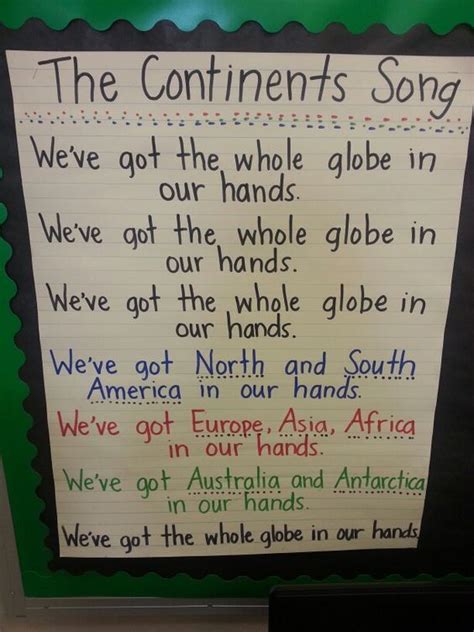 The Continents Song
We've got the whole globe in
our hands.
We've got the whole globe in
our hands.
We've got the whole globe in
our hands.
We've got North and South
America in our hands.
We've got Europe, Asia, Africa
in our hands.
We've got Australia and Antarctica
in our hands.
We've got the whole globe in our hands.